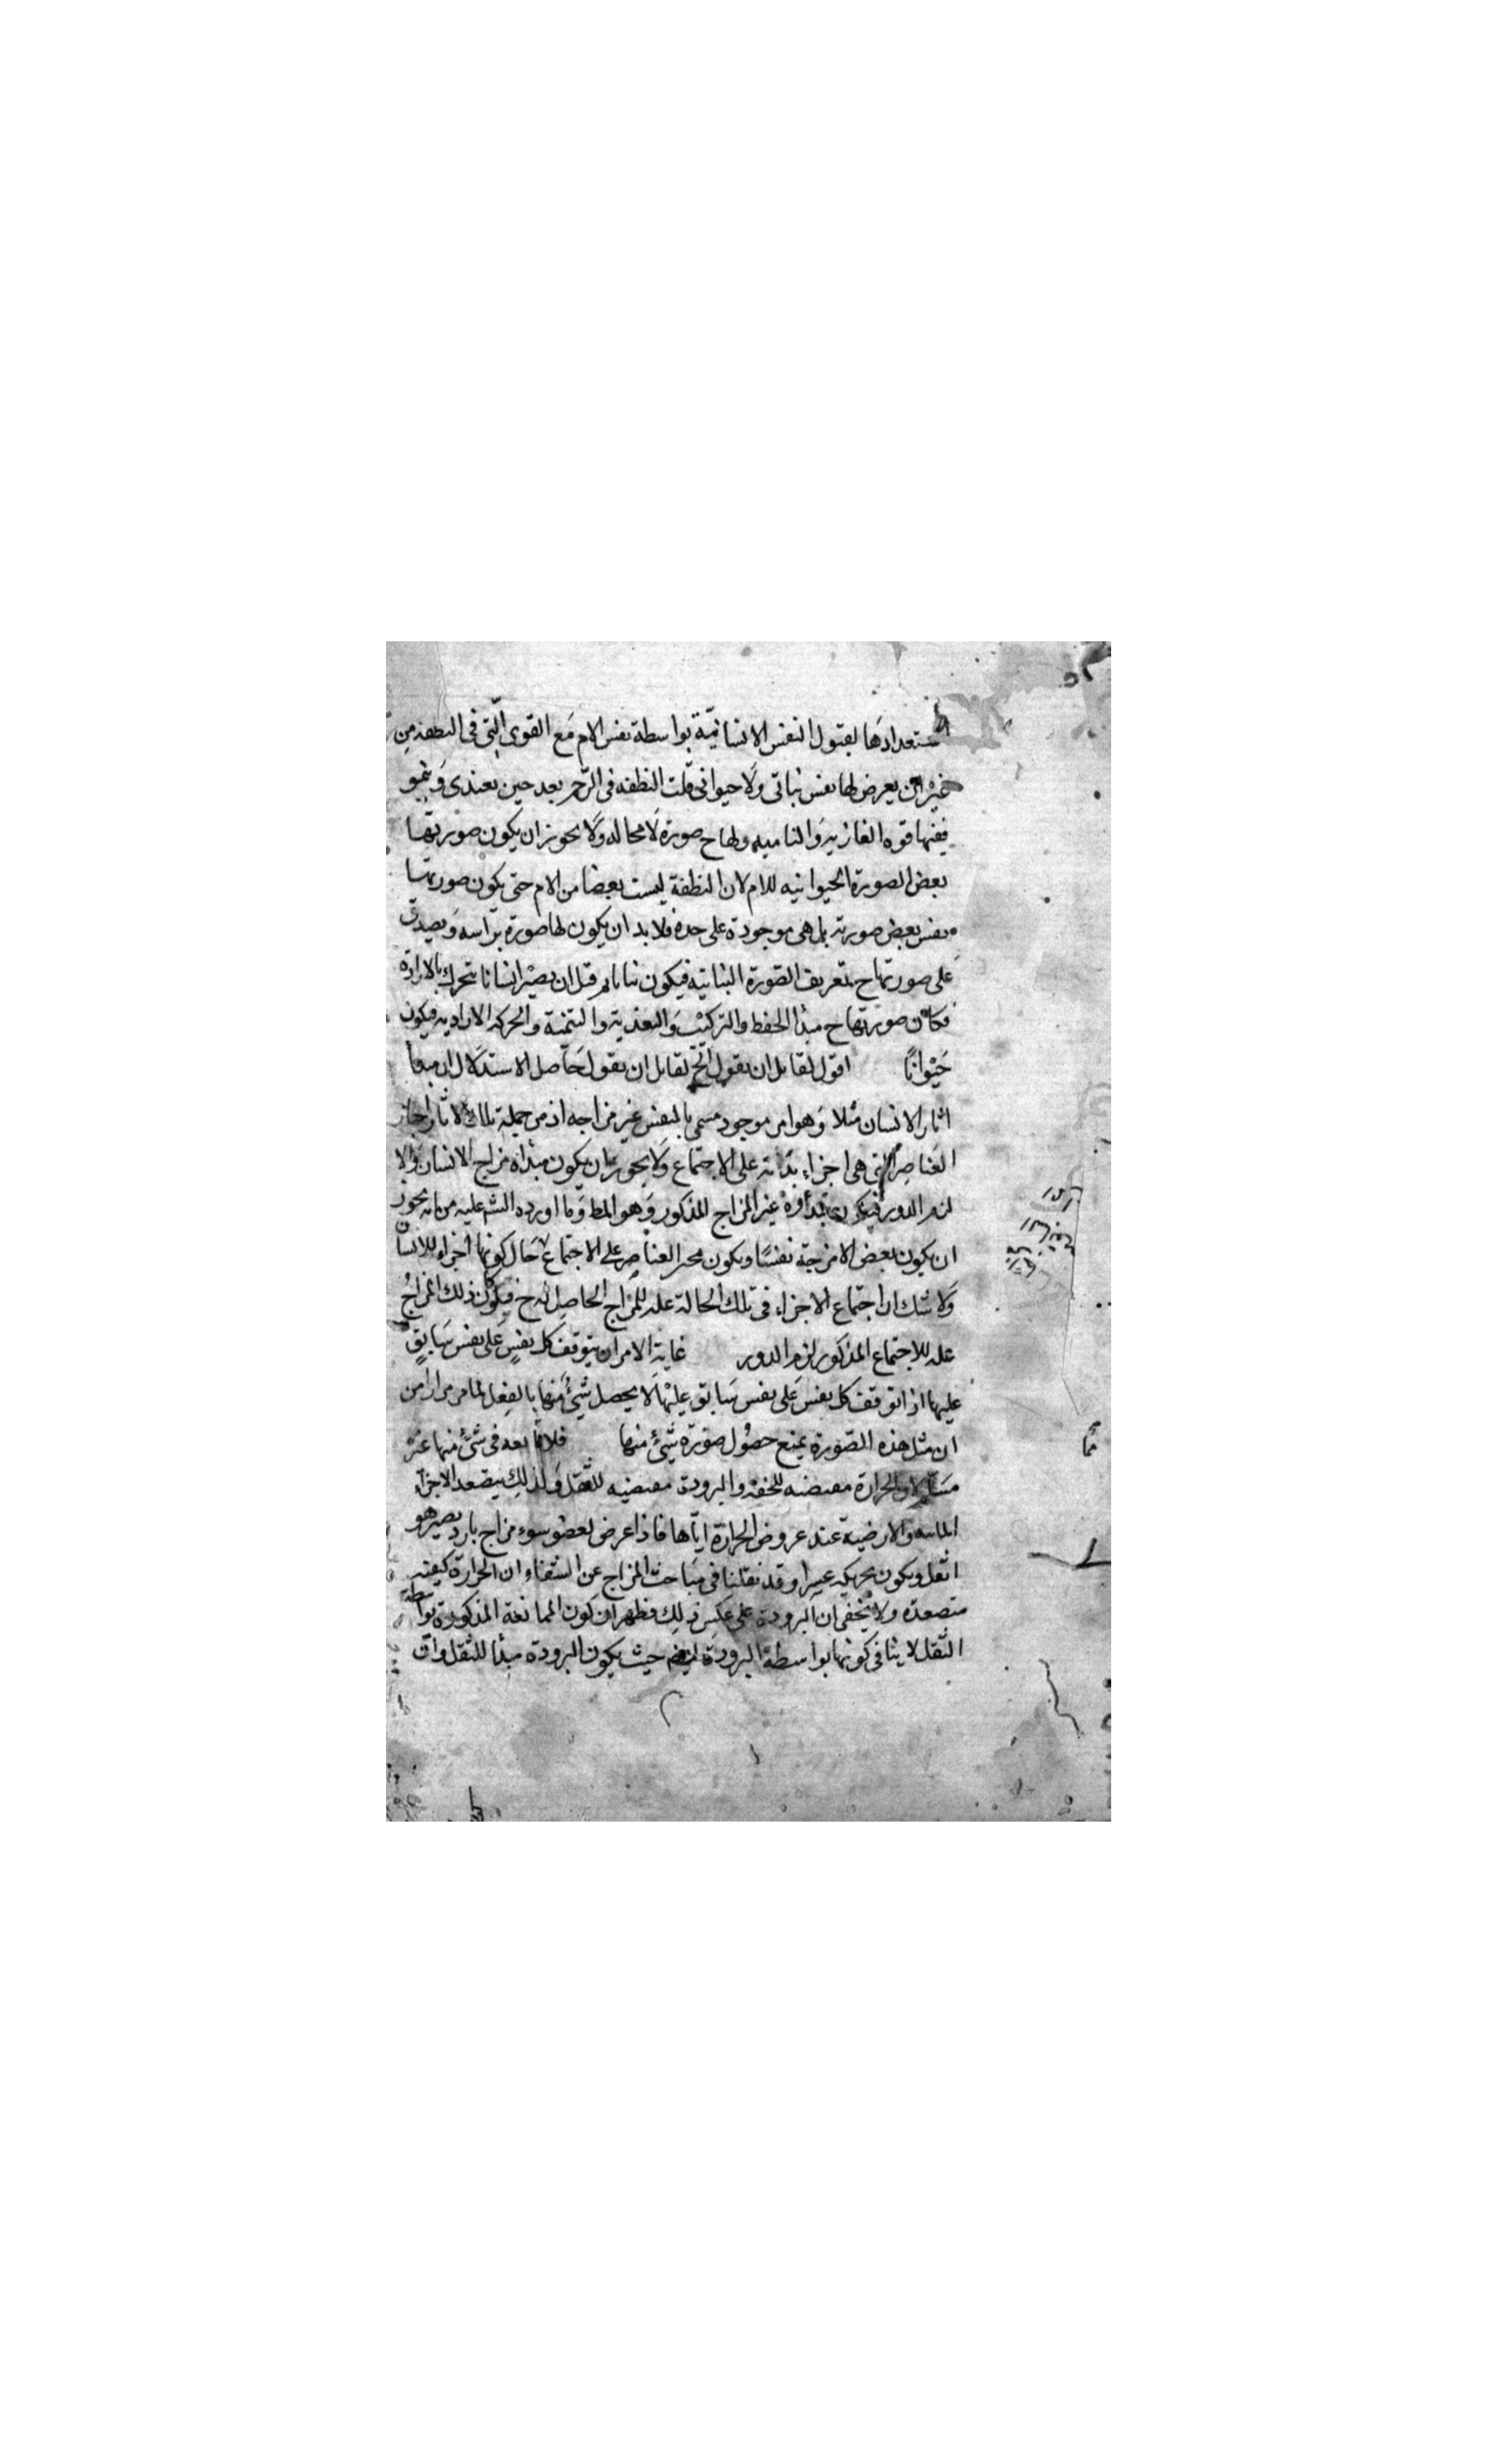 استعدادها لقبول النفس الانسانيّة بواسطة نفس الام مَع القوى الّتى فى النطفه مِن
غيْر ان يعرض لها نفس نباتى ولَا حيوانى قلت النطفه فى الرّحم بعد حين يغتذى وَينمو
ففيها قوه الغاذيه وَالناميه ولها ح صورة لَا محاله وَلَا يجوز ان يكون صورتها
بعض الصورة الحيوانيه للام لان النطفة ليست بعضا من الام حتى يكون صورتها
نفس بعض صورته بل هى موجودة على حدة فلا بد ان يكون لها صورة براسه وَيصدق
على صورتها ح تعريف الصّورة النباتيه فيكون نباتا ثم قبل ان يصيْر انسانا يتحرك بالارادة
فكان صورتها ح مبدا الحفظ والتركيْب وَالتغذية والتنمية والحركه الاراديه فيكون
حَيْوانًا اقول لقايل ان يقول الخ لقايل ان يقول حَاصل الاستدلَال ان مبدأ
اثار الانسان مثلا وَهو امر موجود مسمى بالنفس غير مزاجه اذ من جملة تلك الاثار اجبار
العَناصِر التى هى اجزاء بدَنه على الاجتماع وَلَا يجوز ان يكون مبداه مزاج الانسان وَالا
لزم الدور فيكون مبدأوه غير المزاج المذكور وَهو المط وَما اورده الش عليه من انه يجوز
ان يكون بعض الامزجة نفسًا ويكون مجبر العناصر على الاجتماع حَال كونها اجزاء للانسان
وَلَا شك ان اجتماع الاجزاء فى تلك الحالة علة للمزاج الحاصِل له ح فيكون ذلك المزاجُ
عله للاجتماع المذكور لزم الدور غاية الامر ان يتوقف كل نفسٍ عَلى نفس سَابقٍ
عليها اذا توقف كل نفس عَلى نفس سَابق عليْها لَا يحصل شيْئ منها بالفعِل لما مر مرارا من
ان مثل هذه الصّورة يمنع حصُول صورة شيْئ منها فلا بعد فى شئ منها غيْر
مسَلم لان الحرارة مقتضيه للخفة والبرودة مقتضيه للثقل وَلذلِك يتصعد الاجزاء
المائيه والارضية عند عروض الحرارة ايّاها فاذا عرض لعضو سوء مزاج بارد يصير هو
اثقل ويكون تحريكه عسيرا وقد نقلنا فى مبَاحث المزاج عن الشفاء ان الحرارة كيفيه
متصعدة ولا يخفى ان البرودة على عكس ذلك فظهر ان كون الممانعة المذكورة بواسطة
الثقل لا ينافى كونها بواسطة البرودة حيث يكون البرودة مبدأ للثقل وان